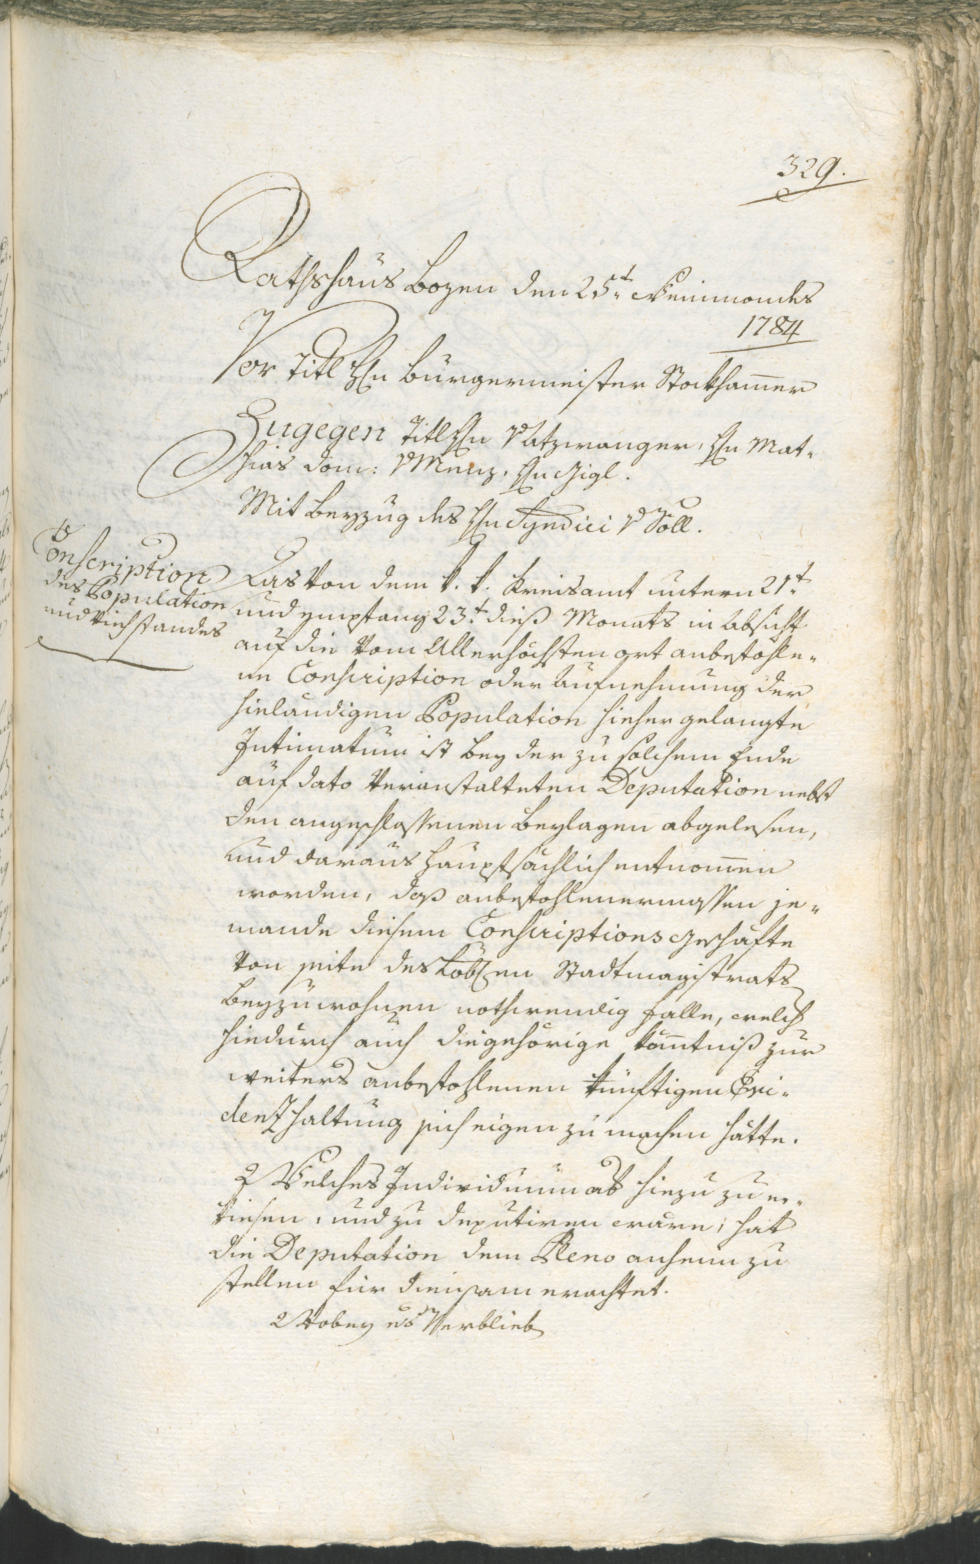 329.
Rathshaus Bozen den 25t. Weinmondes
1784
Vor Titl Hn Bürgermeister Stockhamer
Zugegen Titl Hn v Atzwanger, Hn Mat-
thias Dom: v Menz, Hn Gigl.
Mit Beyzug des Hn Syndici v Söll.
Conscription
des Population
und Viehstandes
Das von dem k. k. Kreisamt untern 21t.
und empfang 23t. dieß Monats in Absicht
auf die vom Allerhöchsten ort anbefohle-
ne Conscription oder Aufnehmung der
hieländigen Population hieher gelangte
Intimatum ist bey der zu solchem Ende
auf dato veranstalteten Deputation nebst
den angeschlossenen Beylagen abgelesen,
und daraus hauptsächlich entnomen
worden, daß anbefohlenermassen je-
mande diesem Conscriptionsgeschäfte
von seite des Löben Stadtmagistrats
beyzuwohnen nothwendig falle, welch
hiedurch auch die gehörige käntniß zur
weiters anbefohlenen künftigen Evi-
denzhaltung sich eigen zu machen hätte.
Welches Individuum ab hiezu zu er-
kiesen, und zu deputiren wäre, hat
die Deputation dem Pleno anheim zu
stellen für diensam erachtet.
Wobey es verblieb